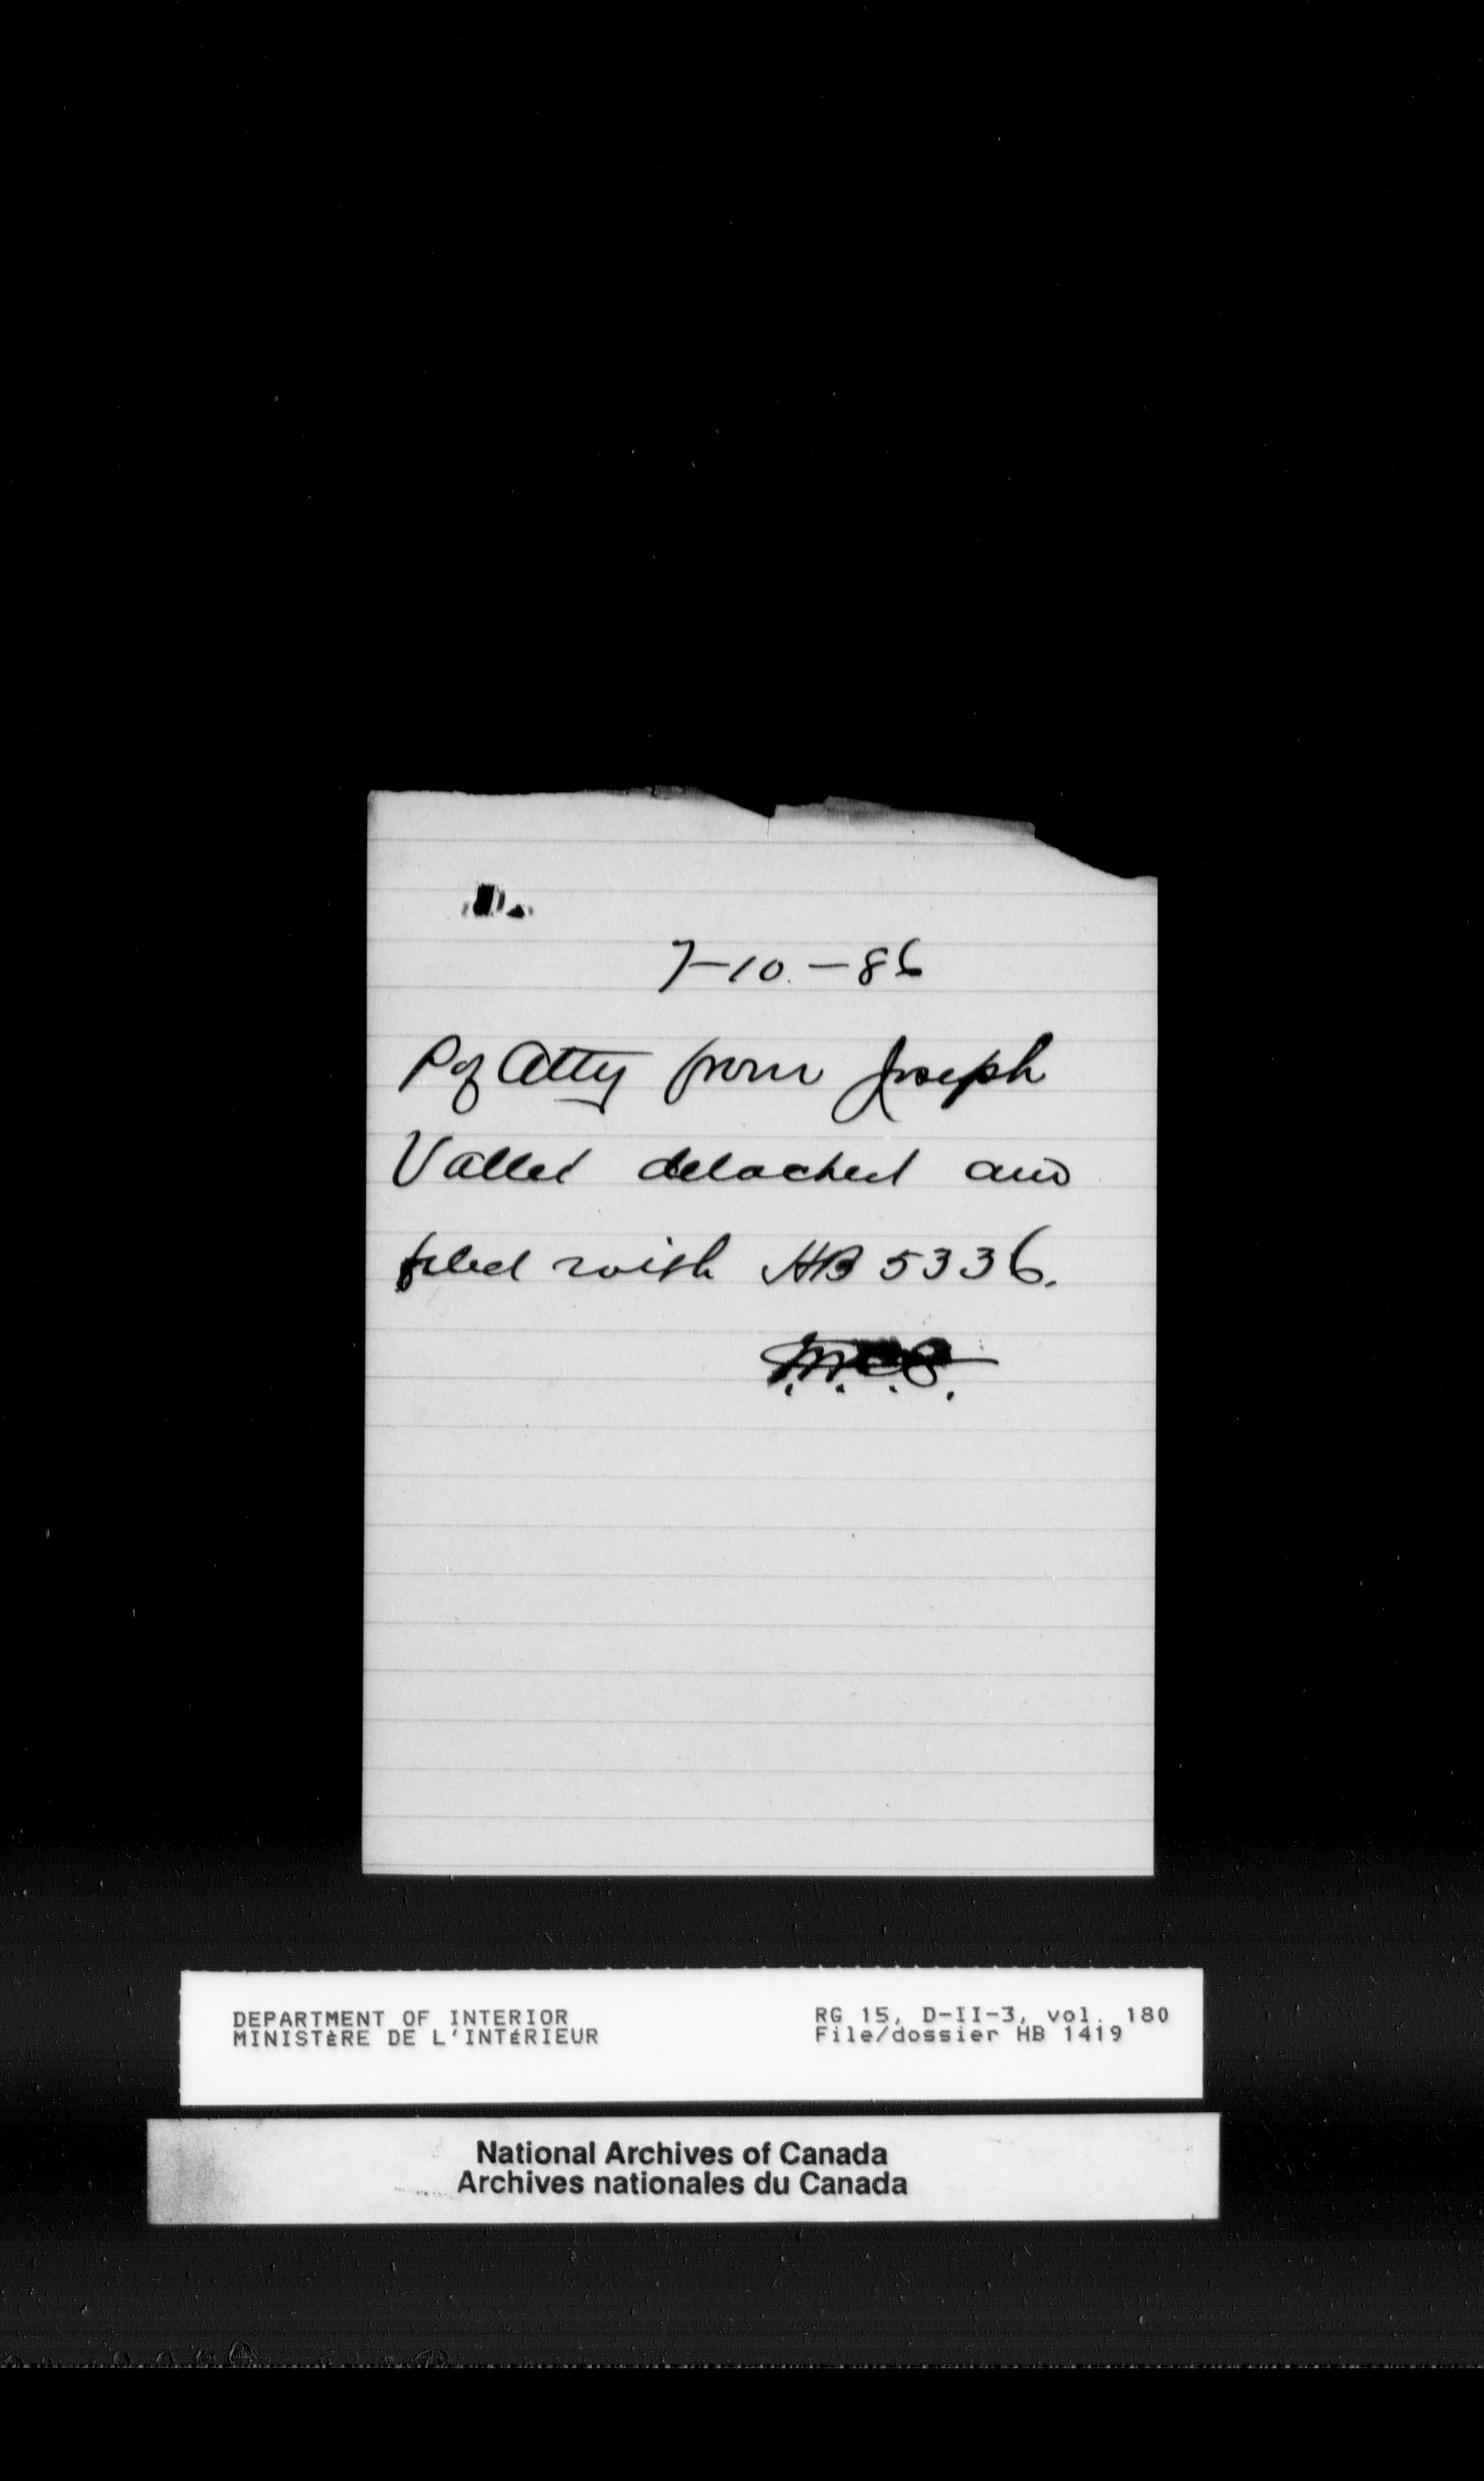 7-10-86
P of Atty from Joseph
Vallet detached and
filed with HB 5336.
DEPARTMENT OF INTERIOR
MINISTÈRE DE L'INTÉRIEUR
RG 15, D-II-3, vol. 180
File/dossier HB 1419
National Archives of Canada
Archives nationales du Canada